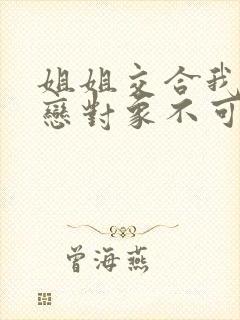 姐姐交合我
戀對象不可
曾海燕